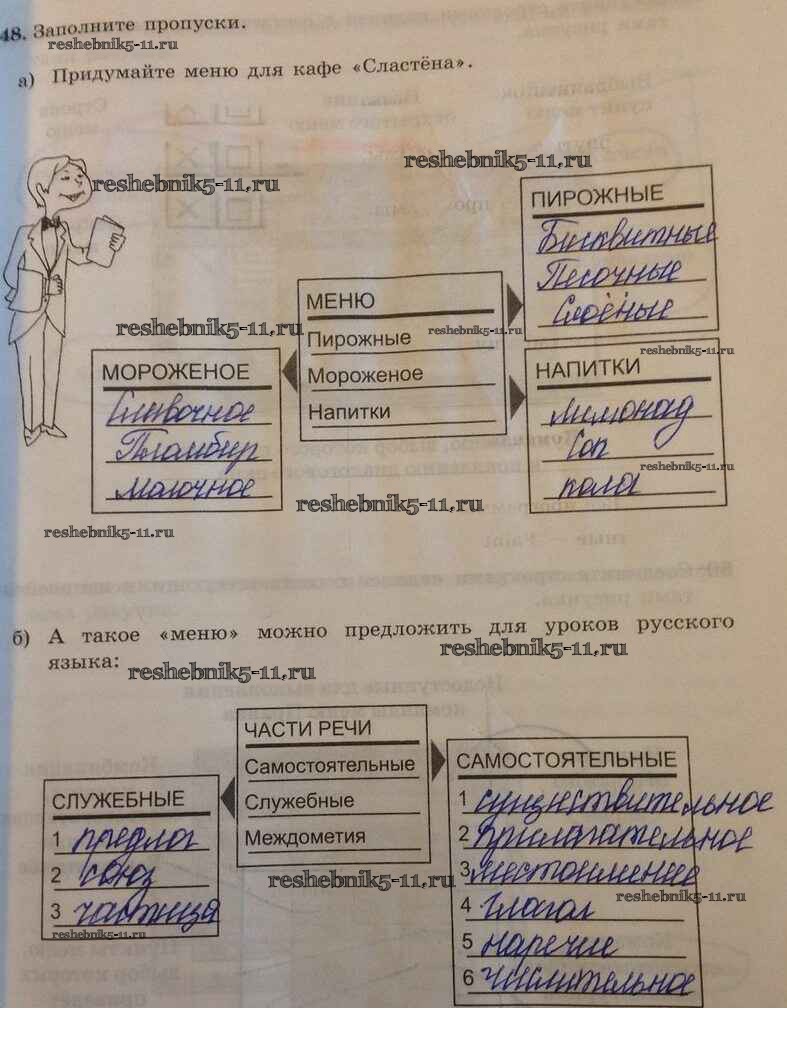 48. Заполните пропуски.
reshebnik5-11.ru
а) Придумайте меню для кафе «Сластёна».
reshebnik5-11.ru
reshebnik5-11.ru
ПИРОЖНЫЕ
Бисквитные
Песочные
Слоёные
МЕНЮ
Пирожные
Мороженое
Напитки
reshebnik5-11.ru
reshebnik5-11.ru
reshebnik5-11.ru
МОРОЖЕНОЕ
Сливочное
Пломбир
молочное
НАПИТКИ
лимонад
Сок
кола
reshebnik5-11.ru
reshebnik5-11.ru
reshebnik5-11.ru
б) А такое «меню» можно предложить для уроков русского
языка:
reshebnik5-11.ru
reshebnik5-11.ru
ЧАСТИ РЕЧИ
Самостоятельные
Служебные
Междометия
СЛУЖЕБНЫЕ
1 предлог
2 союз
3 частица
САМОСТОЯТЕЛЬНЫЕ
1 существительное
2 прилагательное
3 местоимение
4 глагол
5 наречие
6 числительное
reshebnik5-11.ru
reshebnik5-11.ru
reshebnik5-11.ru